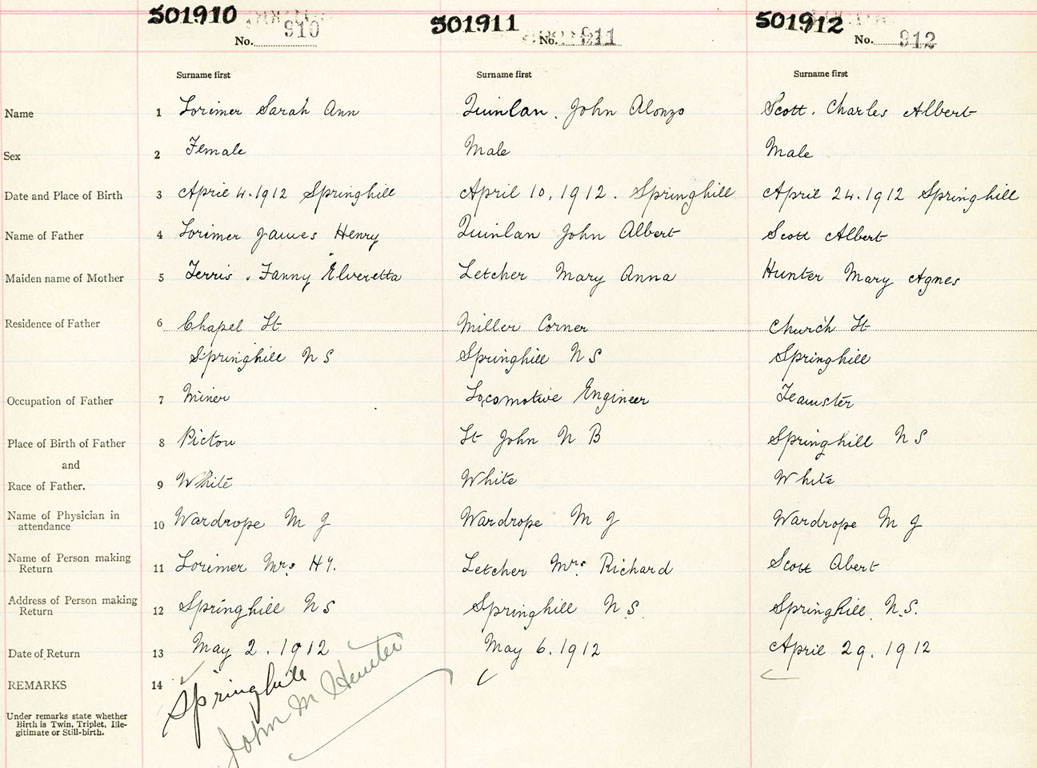 501910 501911 501912
No. 910 No. 911 No. 912
Surname first Surname first Surname first
Name 1 Lorimer Sarah Ann Quinlan, John Alonzo Scott. Charles Albert
Sex 2 Female Male Male
Date and Place of Birth 3 April 4. 1912 Springhill April 10, 1912. Springhill April 24. 1912 Springhill
Name of Father 4 Lorimer James Henry Quinlan John Albert Scott Albert
Maiden name of Mother 5 Ferris. Fanny Elveretta Letcher Mary Anna Hunter Mary Agnes
Residence of Father 6 Chapel St Miller Corner Church St
Springhill N S Springhill N S Springhill
Occupation of Father 7 Miner Locomotive Engineer Teamster
Place of Birth of Father 8 Pictou St John N B Springhill N S
and
Race of Father. 9 White White White
Name of Physician in attendance 10 Wardrope M J Wardrope M J Wardrope M J
Name of Person making Return 11 Lorimer Mrs Hy. Letcher Mrs Richard Scott Abert
Address of Person making Return 12 Springhill N S Springhill N.S. Springhill. N.S.
Date of Return 13 May 2. 1912 May 6. 1912 April 29. 1912
REMARKS 14 Springhill
John M Hunter
Under remarks state whether
Birth is Twin, Triplet, Ille-
gitimate or Still-birth.